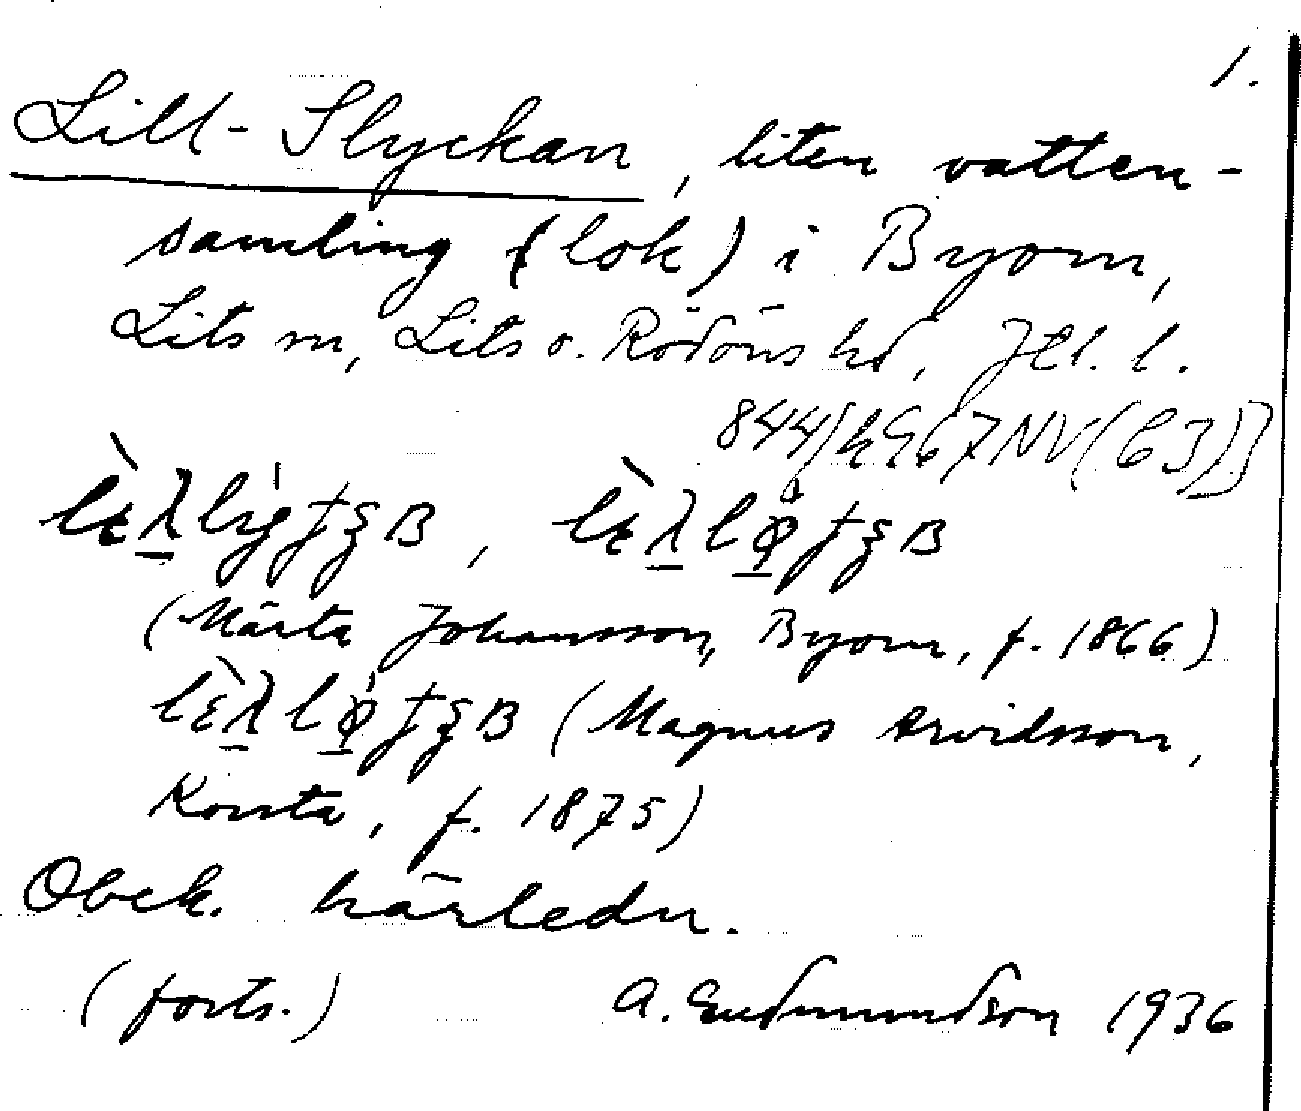 1.
Lill-Slyckan, liten vatten-
samling (lok) i Byom,
Lits sn, Lits o. Rödöns hd, Jtl. l.
(Märta Johansson, Byom, f. 1866)
(Magnus Arvidsson,
Korsta, f. 1875)
Obek. härledn.
(forts.) A. Gudmundson 1936